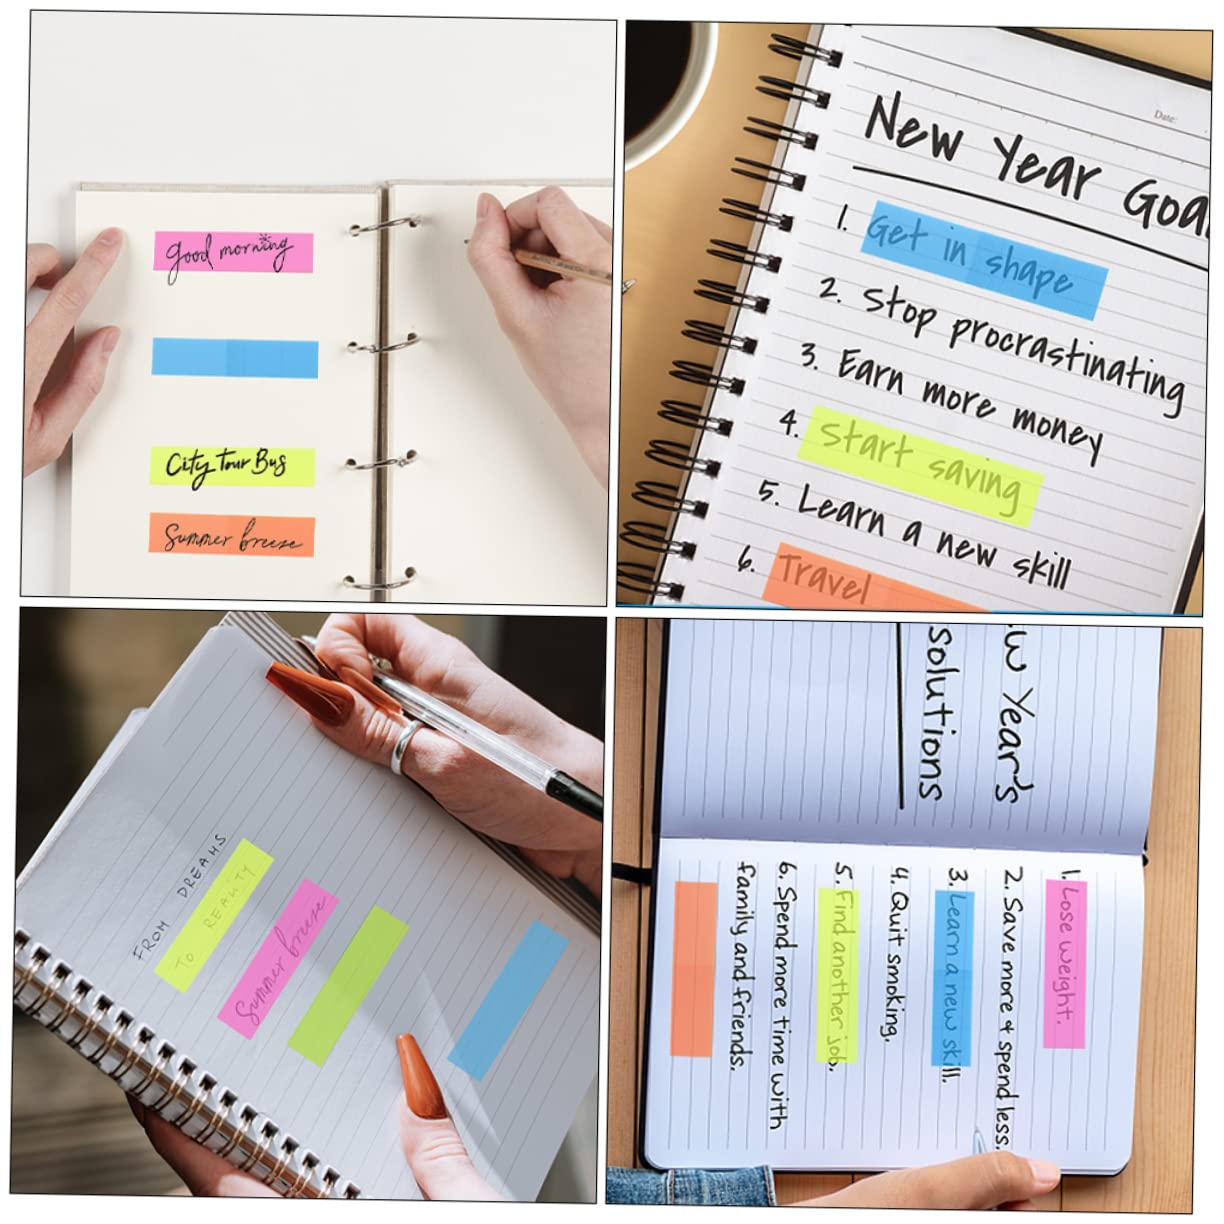 Good morning
City Tour Bus
Summer breeze
Date:
New Year Goa
1. Get in shape
2. Stop procrastinating
3. Earn more money
4. Start saving
5. Learn a new skill
6. Travel
FROM DREAMS
TO REALITY
Summer breeze
w Year's
solutions
1. Lose weight.
2. Save more & spend less.
3. Learn a new skill.
4. Quit smoking.
5. Find another job.
6. Spend more time with
family and friends.